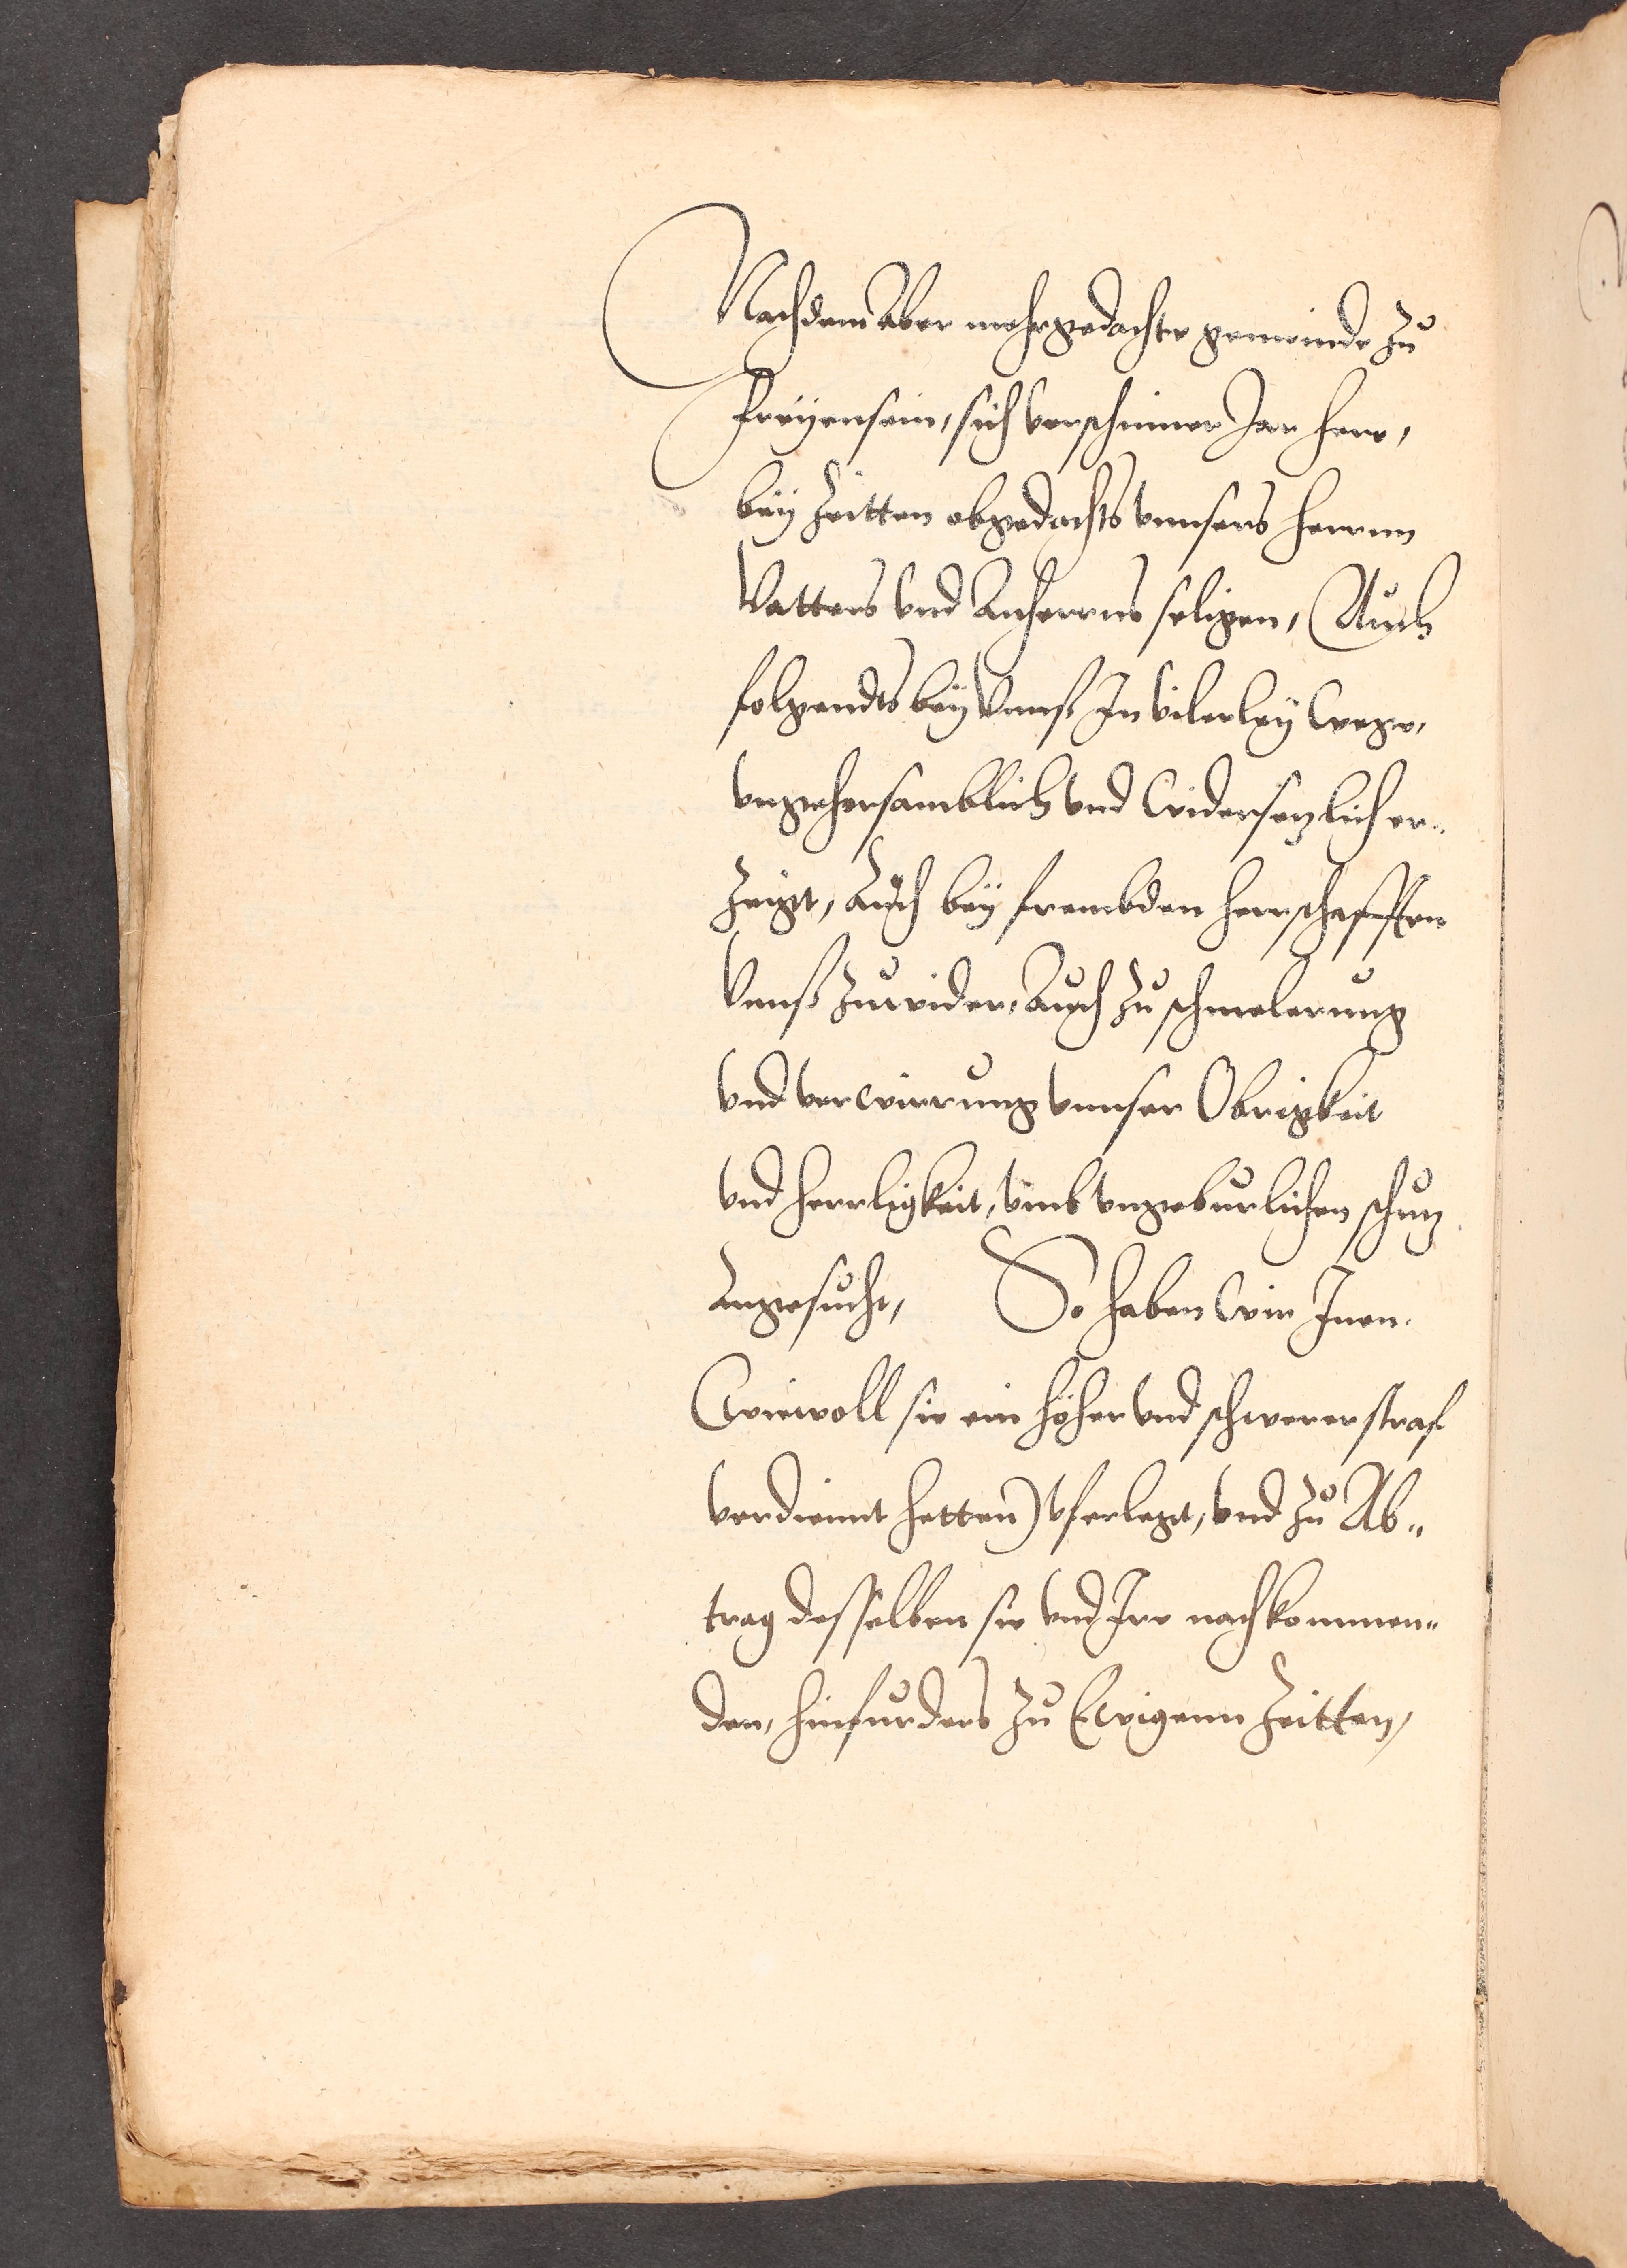 Nachdem Aber mehrgedachte gemeinde zu
Freyensein, sich verschiner Jar here,
bey Zeitten obgedachts vnnsers herrnn
Vatters vnd Anherrns seligen, Auch
folgendts bey Vnnß In vilerley wege,
vngehorsamblich vnd widersezlich er„
Zeigt, Auch bey frembden herrschafften
Vnnß Zuwider, Auch Zu schmelerung
vnd verwirrung vnnser Obrigkeit
vnd herrligkeit, vmb vngeburlichen schuz
Angesucht, So haben wir Inen
(wiewoll sie ein höher vnd schwerer straf
verdiennt hetten) vferlegt, vnd zu Ab„
trag desselben sie vnd Ire nachkommen„
den, hinfurders Zu Ewigenn Zeitten,